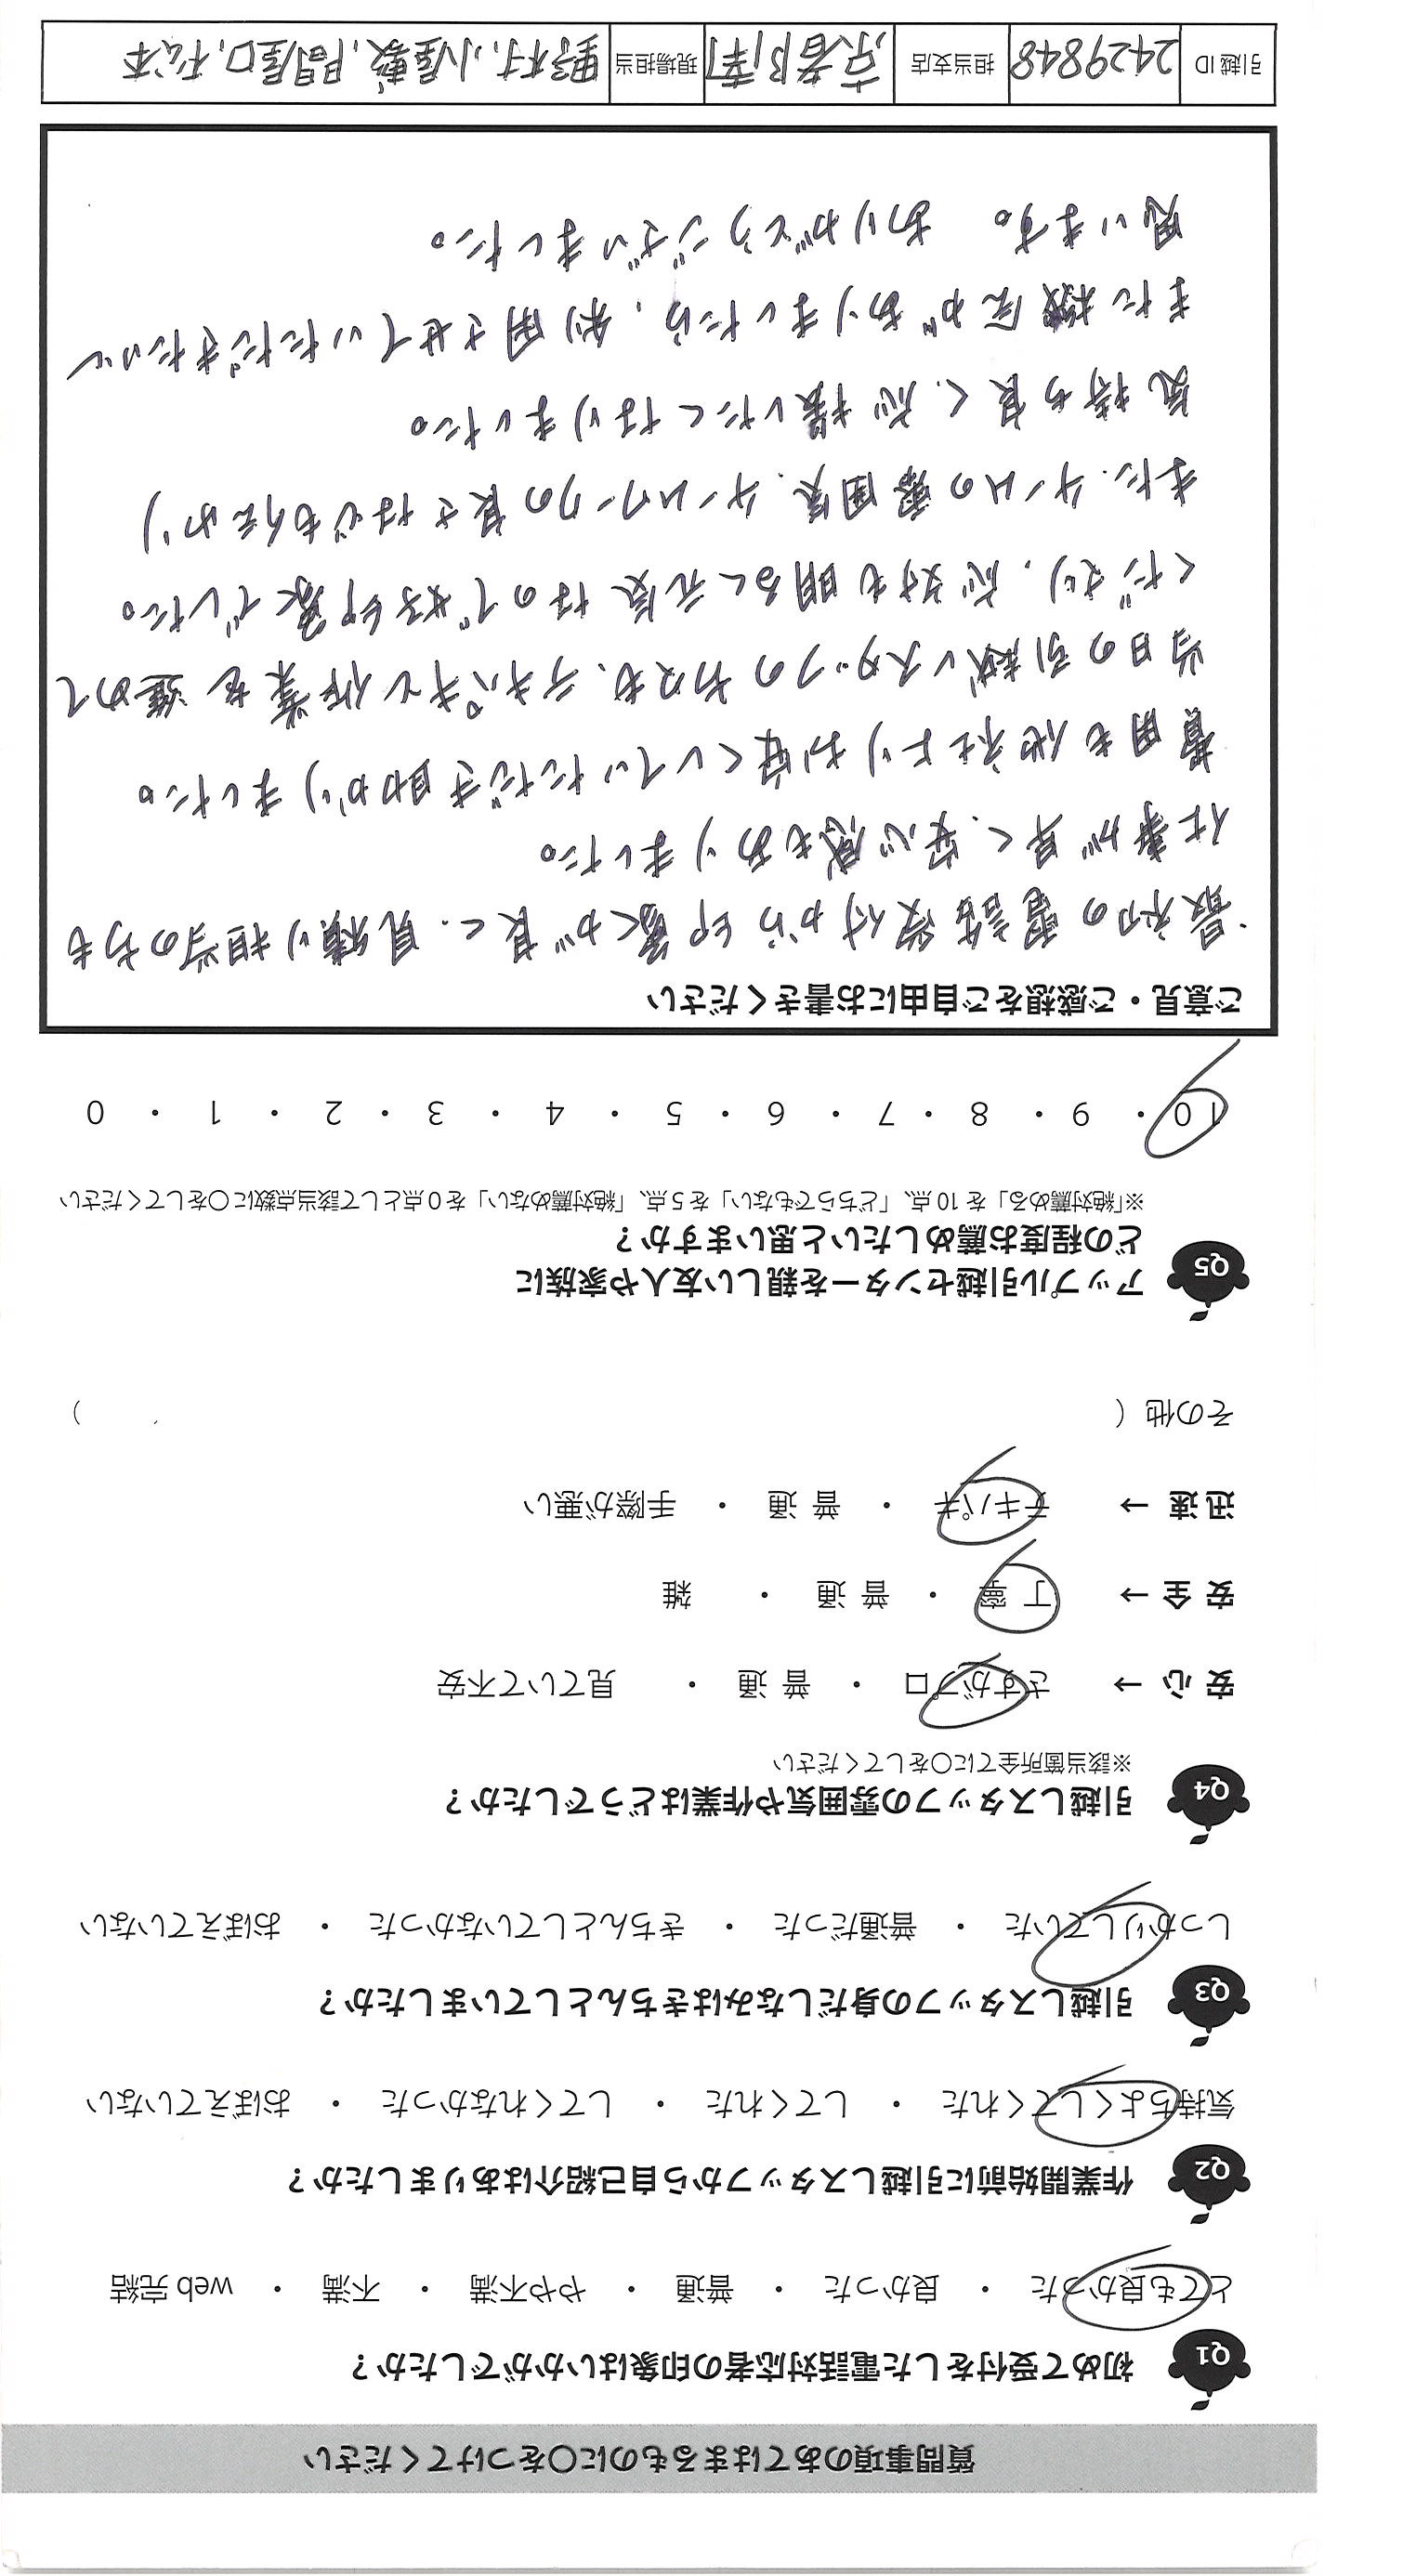 質問事項のあてはまるものに○をつけてください
Q1 初めて受付をした電話対応者の印象はいかがでしたか？
とても良かった ・ 良かった ・ 普通 ・ やや不満 ・ 不満 ・ web 完結
Q2 作業開始前に引越しスタッフから自己紹介はありましたか？
気持ちよくしてくれた ・ してくれた ・ してくれなかった ・ おぼえていない
Q3 引越しスタッフの身だしなみはきちんとしていましたか？
しっかりしていた ・ 普通だった ・ きちんとしていなかった ・ おぼえていない
Q4 引越しスタッフの雰囲気や作業はどうでしたか？
※該当箇所全てに○をしてください
安 心 → さすがプロ ・ 普 通 ・ 見ていて不安
安 全 → 丁 寧 ・ 普 通 ・ 雑
迅 速 → テキパキ ・ 普 通 ・ 手際が悪い
その他（ ）
Q5 アップル引越センターを親しい友人や家族に
どの程度お薦めしたいと思いますか？
※「絶対薦める」を 10 点、「どちらでもない」を 5 点、「絶対薦めない」を 0 点として該当点数に○をしてください
10 ・ 9 ・ 8 ・ 7 ・ 6 ・ 5 ・ 4 ・ 3 ・ 2 ・ 1 ・ 0
ご意見・ご感想をご自由にお書きください
最初の電話受付から印象が良く、見積り担当の方も
仕事が早く、安心感もありました。
費用も他社よりお安くしていただき助かりました。
当日の引越しスタッフの方々も、テキパキと作業を進めて
くださり、応対も明るく元気なので好印象でした。
また、チームの雰囲気、チームワークの良さなども伝わり
気持ち良く、応援したくなりました。
また機会がありましたら、利用させていただきたいと
思います。 ありがとうございました。
引越 ID 2429848 担当支店 京都南 現場担当 野村、小屋敷、関屋口、松本